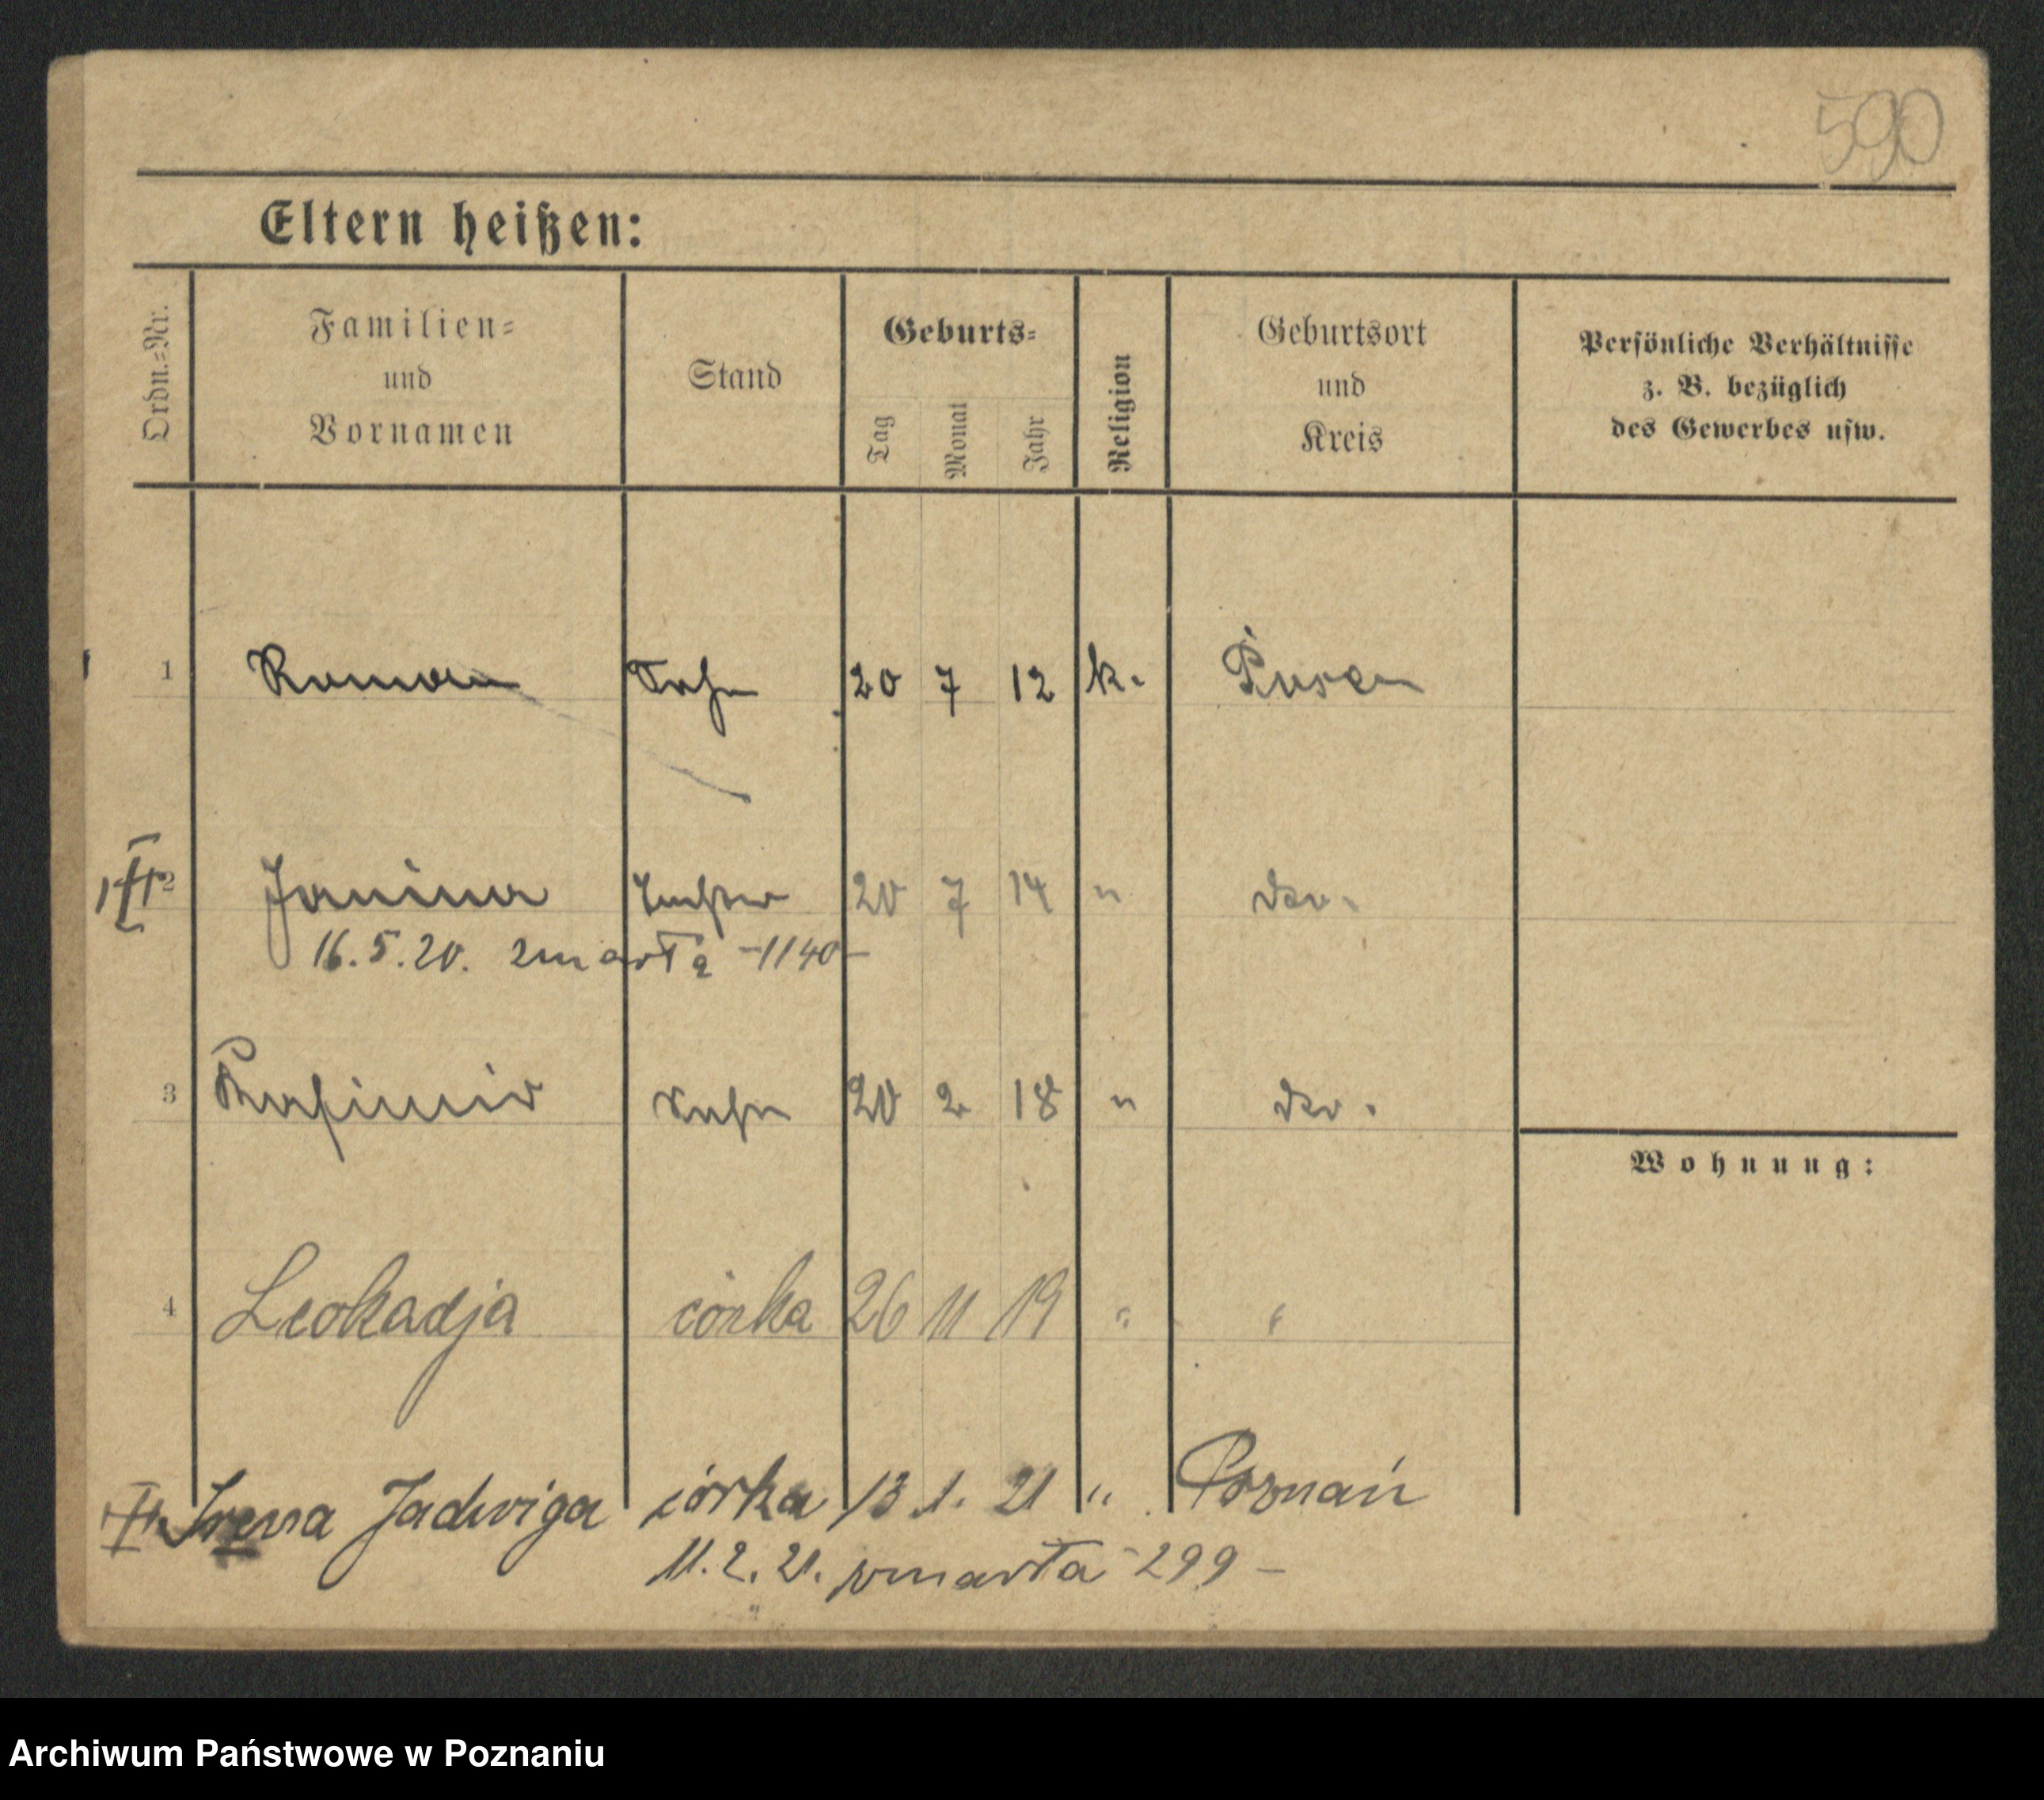 590
Eltern heißen:
Ordn.=Nr.
Familien=
und
Vornamen
Stand
Geburts=
Tag
Monat
Jahr
Religion
Geburtsort
und
Kreis
Persönliche Verhältnisse
z. B. bezüglich
des Gewerbes usw.
1 Roman Sohn 20 7 12 k. Posen
2 Janina Tochter 20 7 14 " do.
16.5.20. zmarła -1140-
3 Kasimir Sohn 20 2 18 " do.
Wohnung:
4 Leokadja córka 26 11 19 " "
Irena Jadwiga córka 13 1. 21 " Poznań
11.2.21. zmarła -299-
Archiwum Państwowe w Poznaniu